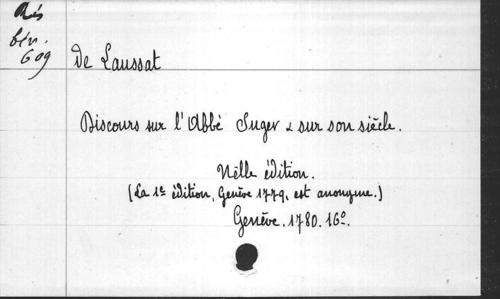 Rés
bév.
609
De Laussat
Discours sur l'Abbé Suger & sur son siècle.
Nelle édition.
(La 1e édition, Genève 1779, est anonyme.)
Genève. 1780. 16º.